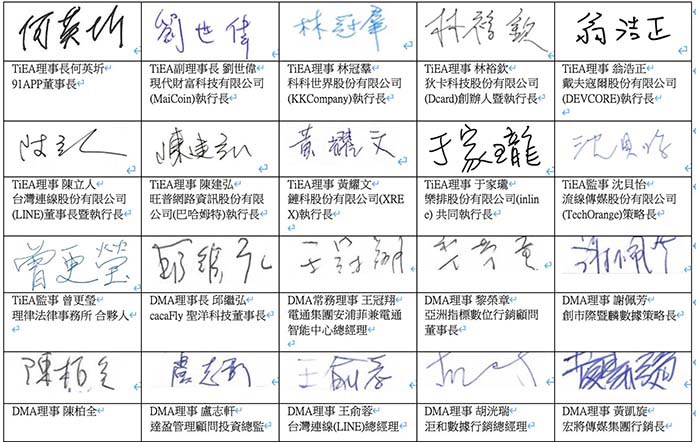 何英圻 劉世偉 林冠羣 林裕欽 翁浩正
TiEA理事長何英圻 TiEA副理事長 劉世偉 TiEA理事 林冠羣 TiEA理事 林裕欽 TiEA理事 翁浩正
91APP董事長 現代財富科技有限公司 科科世界股份有限公司 狄卡科技股份有限公司 戴夫寇爾股份有限公司
(MaiCoin)執行長 (KKCompany)執行長 (Dcard)創辦人暨執行長 (DEVCORE)執行長
陳立人 陳建弘 黃耀文 于家瓏 沈貝怡
TiEA理事 陳立人 TiEA理事 陳建弘 TiEA理事 黃耀文 TiEA理事 于家瓏 TiEA監事 沈貝怡
台灣連線股份有限公司 旺普網路資訊股份有限 鏈科股份有限公司(XRE 樂排股份有限公司(inlin 流線傳媒股份有限公司
(LINE)董事長暨執行長 公司(巴哈姆特)執行長 X)執行長 e) 共同執行長 (TechOrange)策略長
曾更瑩 邱繼弘 王冠翔
TiEA監事 曾更瑩 DMA理事長 邱繼弘 DMA常務理事 王冠翔 DMA理事 黎榮章 DMA理事 謝佩芳
理律法律事務所 合夥人 cacaFly 聖洋科技董事長 電通集團安浦菲兼電通 亞洲指標數位行銷顧問 創市際暨麟數據策略長
智能中心總經理 董事長
陳柏全 盧志軒 王俞蓉
DMA理事 陳柏全 DMA理事 盧志軒 DMA理事 王俞蓉 DMA理事 胡洸瑞 DMA理事 黃凱旋
達盈管理顧問投資總監 台灣連線(LINE)總經理 洰和數據行銷總經理 宏將傳媒集團行銷長